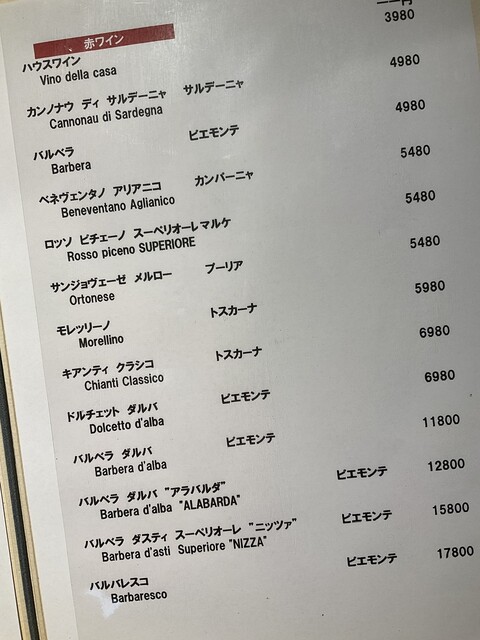 赤ワイン
ハウスワイン 3980
Vino della casa
カンノナウ ディ サルデーニャ サルデーニャ 4980
Cannonau di Sardegna
バルベラ ピエモンテ 4980
Barbera
ベネヴェンタノ アリアニコ カンパーニャ 5480
Beneventano Aglianico
ロッソ ピチェーノ スーペリオーレマルケ 5480
Rosso piceno SUPERIORE
サンジョヴェーゼ メルロー プーリア 5480
Ortonese
モレッリーノ トスカーナ 5980
Morellino
キアンティ クラシコ トスカーナ 6980
Chianti Classico
ドルチェット ダルバ ピエモンテ 6980
Dolcetto d'alba
バルベラ ダルバ ピエモンテ 11800
Barbera d'alba
バルベラ ダルバ "アラバルダ" ピエモンテ 12800
Barbera d'alba "ALABARDA"
バルベラ ダスティ スーペリオーレ "ニッツァ" ピエモンテ 15800
Barbera d'asti Superiore "NIZZA"
バルバレスコ ピエモンテ 17800
Barbaresco